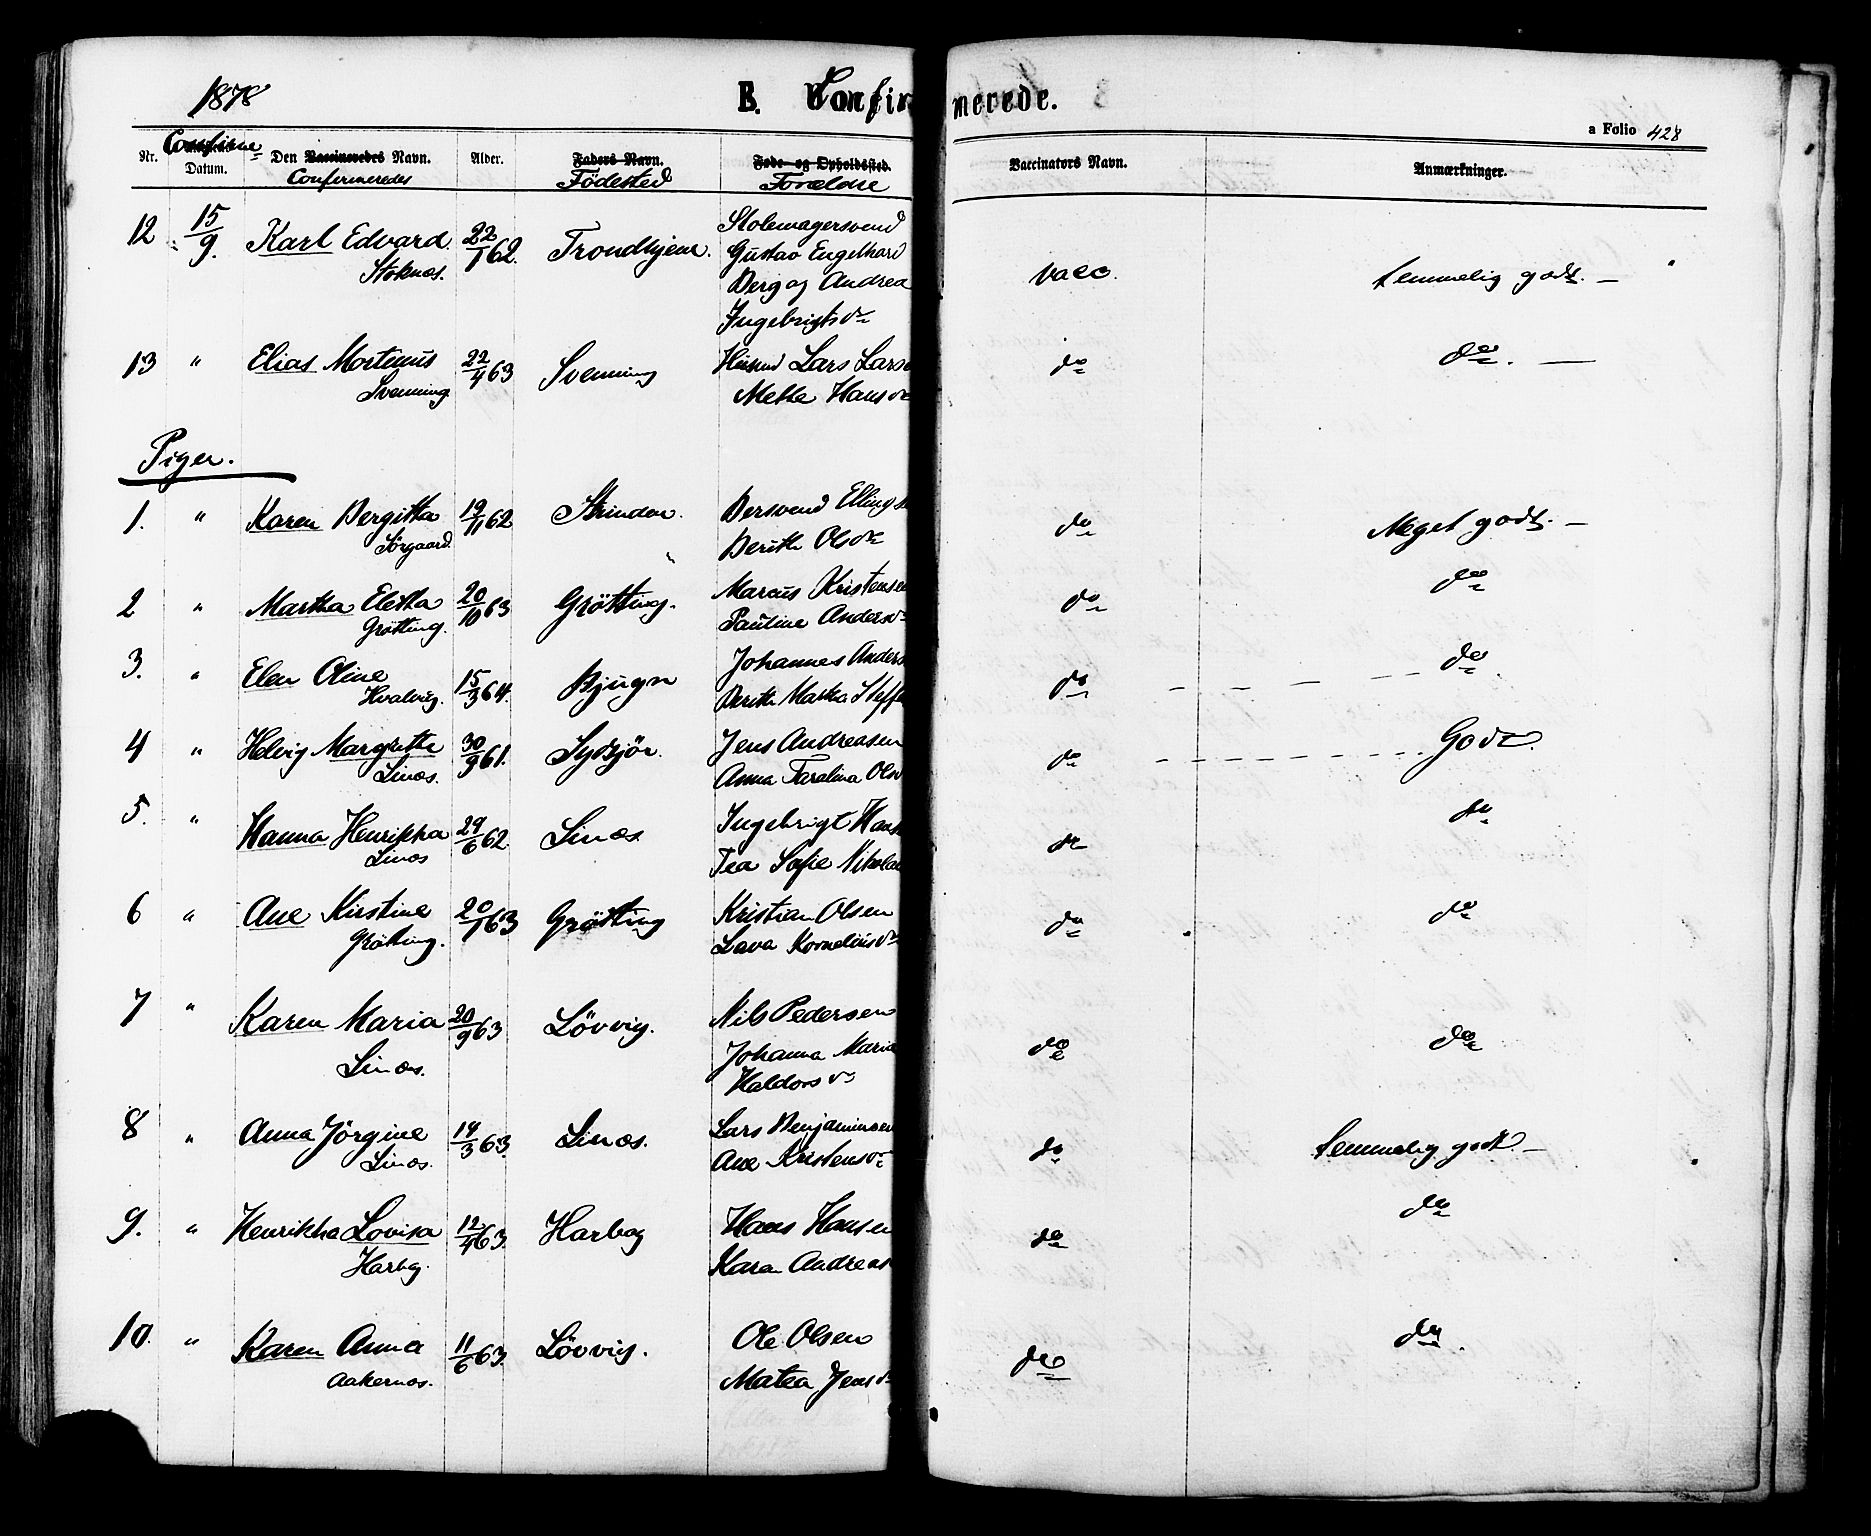 1878
B. Confirmerede.
a Folio 428
Nr. Confirme Datum. Den Vaccineredes Navn. Alder. Faders Navn. Føde- og Opholdssted. Vaccinators Navn. Anmærkninger.
Confirmeredes Födested Forældre
12 15/9. Karl Edvard Stoknæs. 22/1 62. Trondhjem. Stolemagersvend
Gustav Engelhard
Berg og Andrea
Ingebrigtsdr
vacc. temmelig godt. —
13 " Elias Mortinus Svenning 22/4 63 Svenning Husmd Lars Larse
Mette Hansdr
do do. —
Piger.
1. " Karen Bergitta Sørgaard. 19/11 62 Strinden. Bersvend Ellings
Berith Olsdr
do Meget godt. —
2 " Martha Eletta Grøtting. 20/10 63 Grötting. Marcus Kristensen
Pauline Andersdr
do do
3. " Elen Oline Hvalvig. 15/3 64. Bjugn Johannes Anders
Berith Martha Steffe
do do
4 " Helvig Margrethe Linæs. 30/9 61. Sydsjör. Jens Andreasen
Anna Taralina Olsd
do Godt.
5. " Hanna Henrikka Linæs 29/6 62. Linæs. Ingebrigt Hans
Tea Sofie Nikolai
do do
6 " Ane Kirstine Grötting. 20/1 63 Grötting Kristian Olsen
Lava Korneliusdr
do do
7 " Karen Maria Linæs. 20/9 63 Lövvig. Nils Pedersen
Johanna Maria
Haldorsdr
do do
8 " Anna Jörgine Linæs. 14/3 63. Linæs. Lars Benjaminsen
Ane Kristensdr
do temmelig godt. —
9. " Henrikka Lovisa Harbg. 12/4 63. Harbag Hans Hansen
Karen Andreas
do do
10. " Karen Anna Aakernæs. 11/6 63. Lövvig. Ole Olsen
Matea Jensdr
do do.